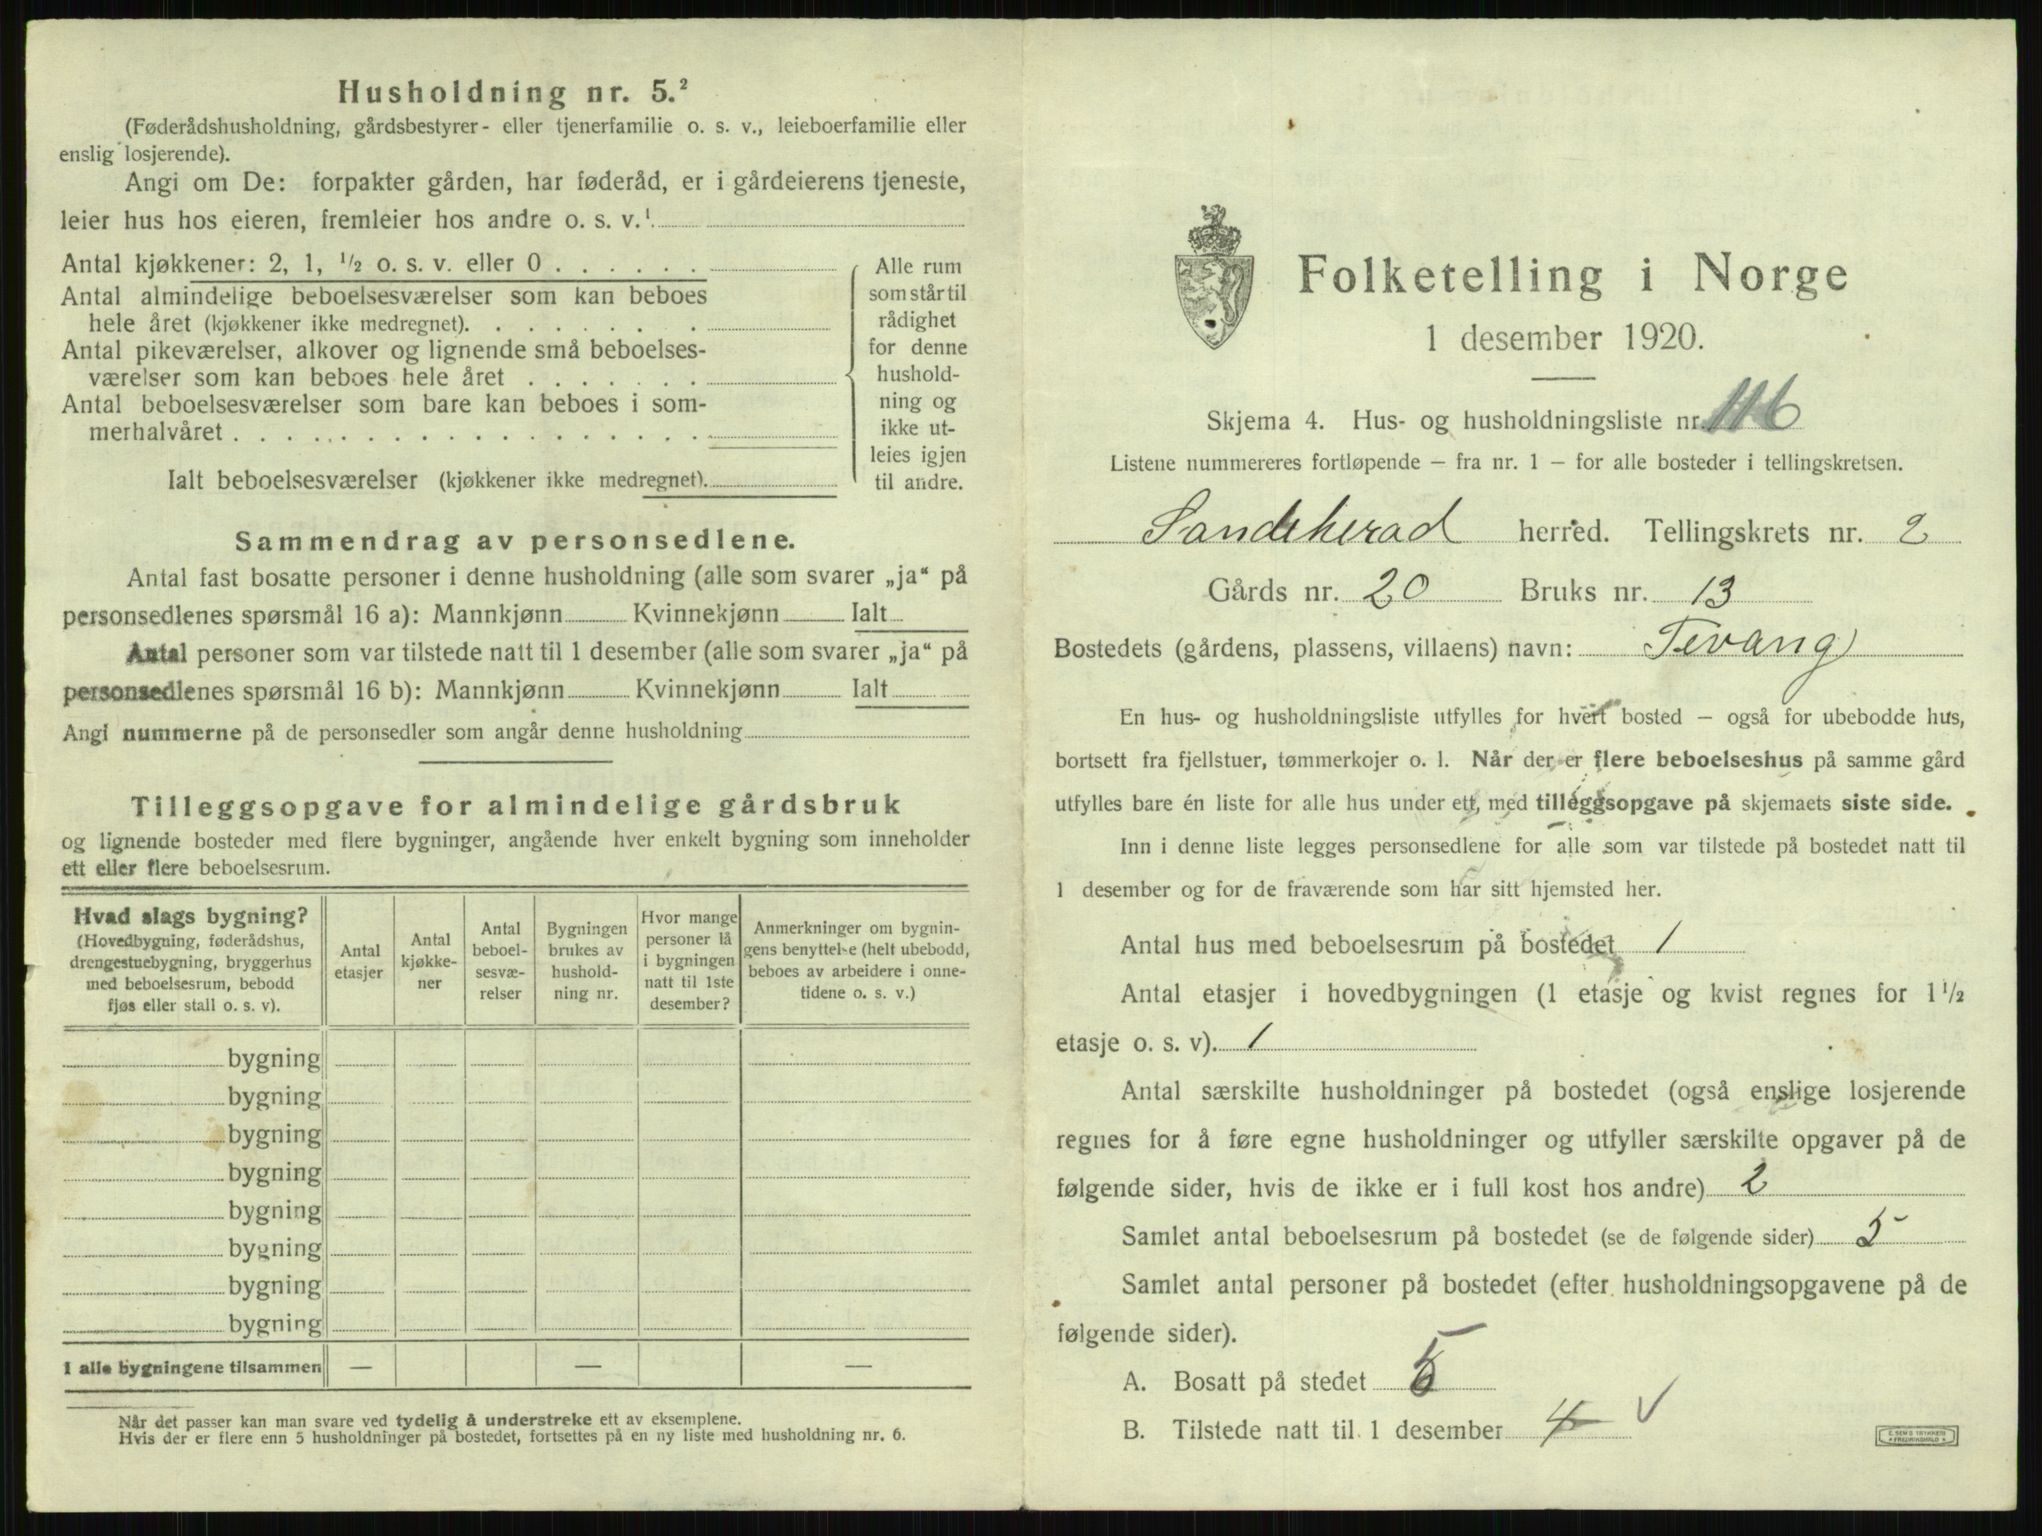 Husholdning nr. 5.²
(Føderådshusholdning, gårdsbestyrer- eller tjenerfamilie o. s. v., leieboerfamilie eller
enslig losjerende).
Angi om De: forpakter gården, har føderåd, er i gårdeierens tjeneste,
leier hus hos eieren, fremleier hos andre o. s. v.¹
Antal kjøkkener: 2, 1, ½ o. s. v. eller 0 . . . . . .
Antal almindelige beboelsesværelser som kan beboes
hele året (kjøkkener ikke medregnet). . . . . . . . .
Antal pikeværelser, alkover og lignende små beboelses-
værelser som kan beboes hele året . . . . . . .
Antal beboelsesværelser som bare kan beboes i som-
merhalvåret . . . . . . . . . . . . . . . . . .
Ialt beboelsesværelser (kjøkkener ikke medregnet).
Alle rum
som står til
rådighet
for denne
hushold-
ning og
ikke ut-
leies igjen
til andre.
Sammendrag av personsedlene.
Antal fast bosatte personer i denne husholdning (alle som svarer „ja“ på
personsedlenes spørsmål 16 a): Mannkjønn Kvinnekjønn Ialt
Antal personer som var tilstede natt til 1 desember (alle som svarer „ja“ på
personsedlenes spørsmål 16 b): Mannkjønn Kvinnekjønn Ialt
Angi nummerne på de personsedler som angår denne husholdning
Tilleggsopgave for almindelige gårdsbruk
og lignende bosteder med flere bygninger, angående hver enkelt bygning som inneholder
ett eller flere beboelsesrum.
Hvad slags bygning?
(Hovedbygning, føderådshus,
drengestuebygning, bryggerhus
med beboelsesrum, bebodd
fjøs eller stall o. s. v).
Antal
etasjer
Antal
kjøkke-
ner
Antal
beboel-
sesvæ-
relser
Bygningen
brukes av
hushold-
ning nr.
Hvor mange
personer lå
i bygningen
natt til 1ste
desember?
Anmerkninger om bygnin-
gens benyttelse (helt ubebodd,
beboes av arbeidere i onne-
tidene o. s. v.)
bygning
bygning
bygning
bygning
bygning
bygning
bygning
bygning
I alle bygningene tilsammen — — —
Når det passer kan man svare ved tydelig å understreke ett av eksemplene.
Hvis der er flere enn 5 husholdninger på bostedet, fortsettes på en ny liste med husholdning nr. 6.
Folketelling i Norge
1 desember 1920.
Skjema 4. Hus- og husholdningsliste nr. 116
Listene nummereres fortløpende – fra nr. 1 – for alle bosteder i tellingskretsen.
Sandeherad herred. Tellingskrets nr. 2
Gårds nr. 20 Bruks nr. 13
Bostedets (gårdens, plassens, villaens) navn: Tevang
En hus- og husholdningsliste utfylles for hvert bosted – også for ubebodde hus,
bortsett fra fjellstuer, tømmerkojer o. l. Når der er flere beboelseshus på samme gård
utfylles bare én liste for alle hus under ett, med tilleggsopgave på skjemaets siste side.
Inn i denne liste legges personsedlene for alle som var tilstede på bostedet natt til
1 desember og for de fraværende som har sitt hjemsted her.
Antal hus med beboelsesrum på bostedet 1
Antal etasjer i hovedbygningen (1 etasje og kvist regnes for 1½
etasje o. s. v). 1
Antal særskilte husholdninger på bostedet (også enslige losjerende
regnes for å føre egne husholdninger og utfyller særskilte opgaver på de
følgende sider, hvis de ikke er i full kost hos andre) 2
Samlet antal beboelsesrum på bostedet (se de følgende sider) 5
Samlet antal personer på bostedet (efter husholdningsopgavene på de
følgende sider).
A. Bosatt på stedet 5
B. Tilstede natt til 1 desember 4 √